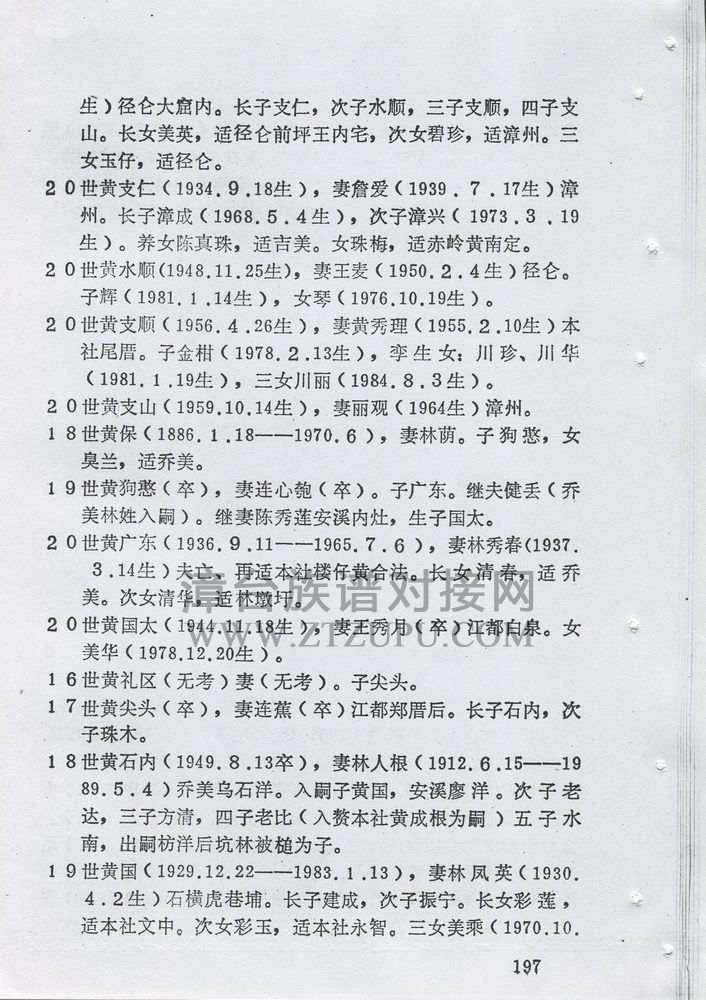 生）径仑大窟内。长子支仁，次子水顺，三子支顺，四子支
山。长女美英，适径仑前坪王内宅，次女碧珍，适漳州。三
女玉仔，适径仑。
２０世黄支仁（1934．9．18生），妻詹爱（1939．7．17生）漳
州。长子漳成（1968．5．4生），次子漳兴（1973．3．19
生）。养女陈真珠，适吉美。女珠梅，适赤岭黄南定。
２０世黄水顺(1948．11．25生)，妻王麦（1950．2．4生）径仑。
子辉（1981．1．14生），女琴（1976．10．19生）。
２０世黄支顺（1956．4．26生），妻黄秀理（1955．2．10生）本
社尾厝。子金柑（1978．2．13生），孪生女：川珍、川华
（1981．1．19生），三女川丽（1984．8．3生）。
２０世黄支山（1959．10．14生），妻丽观（1964生）漳州。
１８世黄保（1886．1．18——1970．6），妻林荫。子狗憨，女
臭兰，适乔美。
１９世黄狗憨（卒），妻连心匏（卒）。子广东。继夫健丢（乔
美林姓入嗣）。继妻陈秀莲安溪内灶，生子国太。
２０世黄广东（1936．9．11——1965．7．6），妻林秀春(1937．
3．14生）夫亡、再适本社楼仔黄合法。长女清春，适乔
美。次女清华，适林墩圩。
２０世黄国太（1944．11．18生），妻王秀月（卒）江都白泉。女
美华（1978．12．20生）。
１６世黄礼区（无考）妻（无考）。子尖头。
１７世黄尖头（卒），妻连蕉（卒）江都郑厝后。长子石内，次
子珠木。
１８世黄石内（1949．8．13卒），妻林人根（1912．6．15——19
89．5．4）乔美乌石洋。入嗣子黄国，安溪廖洋。次子老
达，三子方清，四子老比（入赘本社黄成根为嗣）五子水
南，出嗣枋洋后坑林被槌为子。
１９世黄国（1929．12．22——1983．1．13），妻林凤英（1930．
4．2生）石横虎巷埔。长子建成，次子振宁。长女彩莲，
适本社文中。次女彩玉，适本社永智。三女美乘（1970．10．
197
漳台族谱对接网
WWW.ZTZUPU.COM